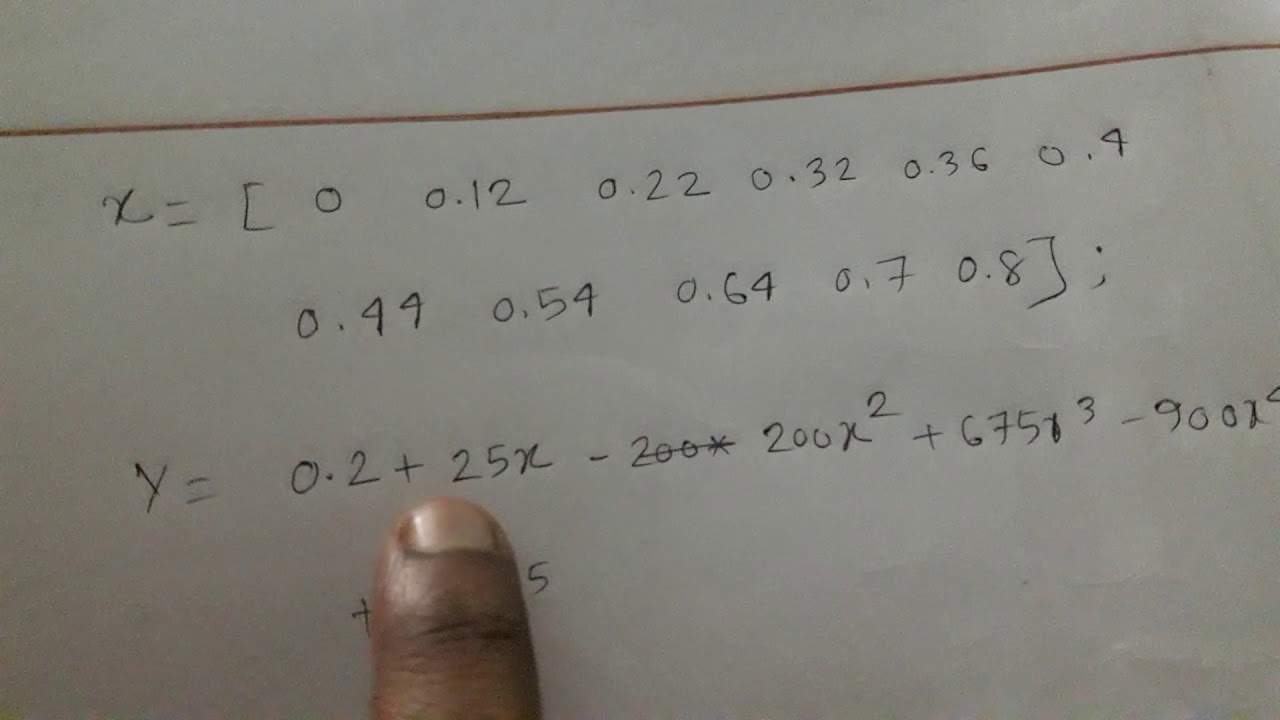 x = [ 0 0.12 0.22 0.32 0.36 0.4
0.44 0.54 0.64 0.7 0.8 ] ;
Y = 0.2 + 25x - 200* 200x² + 675x³ - 900x⁴
+ 5